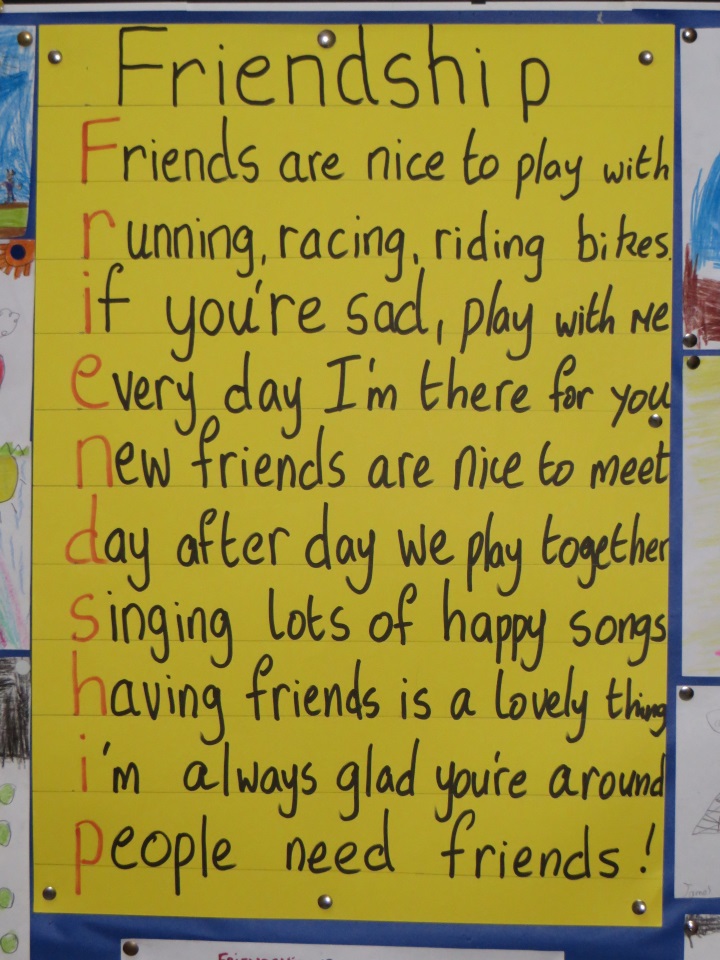 Friendship
Friends are nice to play with
running, racing, riding bikes.
if you're sad, play with me
every day I'm there for you
new friends are nice to meet
day after day we play together
singing lots of happy songs
having friends is a lovely thing
i'm always glad you're around
people need friends!